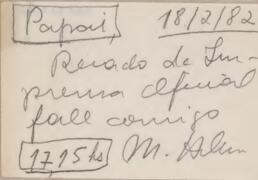 Papai, 18/2/82
Recado da Im-
prensa Oficial
fale comigo
17,15 hs M.